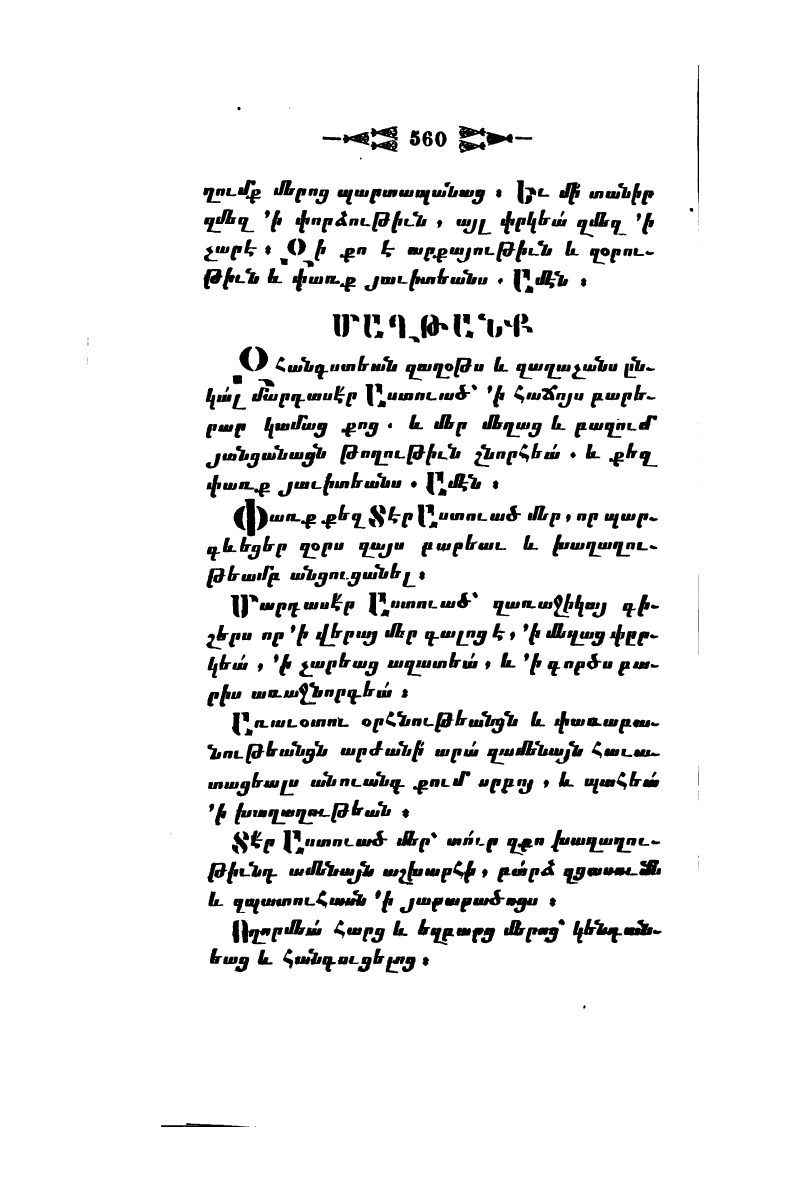 560
ղումք մերոց պարտապանաց ։ Եւ մի տանիր
զմեզ ՚ի փորձութիւն , այլ փրկեա՛ զմեզ ՚ի
չարէ ։ Զի քո է արքայութիւն և զօրու-
թիւն և փառք յաւիտեանս . Ամէն ։
ՄԱՂԹԱՆՔ
Զ Հանգստեան զաղօթս և զաղաչանս ըն-
կա՛լ մարդասէր Աստուած՝ ՚ի հաճոյս բարե-
րար կամաց քոց . և մեր մեղաց և բազում
յանցանացն թողութիւն շնորհեա՛ . և քեզ
փառք յաւիտեանս . Ամէն ։
Փառք քեզ Տէր Աստուած մեր , որ պար-
գևեցեր զօրս զայս բարեաւ և խաղաղու-
թեամբ անցուցանել ։
Մարդասէր Աստուած՝ զառաջիկայ գի-
շերս որ ՚ի վերայ մեր գալոց է , ՚ի մեղաց փըր-
կեա՛ , ՚ի չարեաց ազատեա՛ , և ՚ի գործս բա-
րիս առաջնորդեա՛ ։
Առաւօտու օրհնութեանցն և փառաբա-
նութեանցն արժանի արա՛ զամենայն հաւա-
տացեալս անուանդ քում սրբոյ , և պահեա՛
՚ի խաղաղութեան ։
Տէր Աստուած մեր՝ տո՛ւր զքո խաղաղու-
թիւնդ ամենայն աշխարհի , բա՛րձ զցասումն
և զպատուհասն ՚ի յարարածոցս ։
Ողորմեա՛ հարց և եղբարց մերոց՝ կենդան-
եաց և հանգուցելոց ։